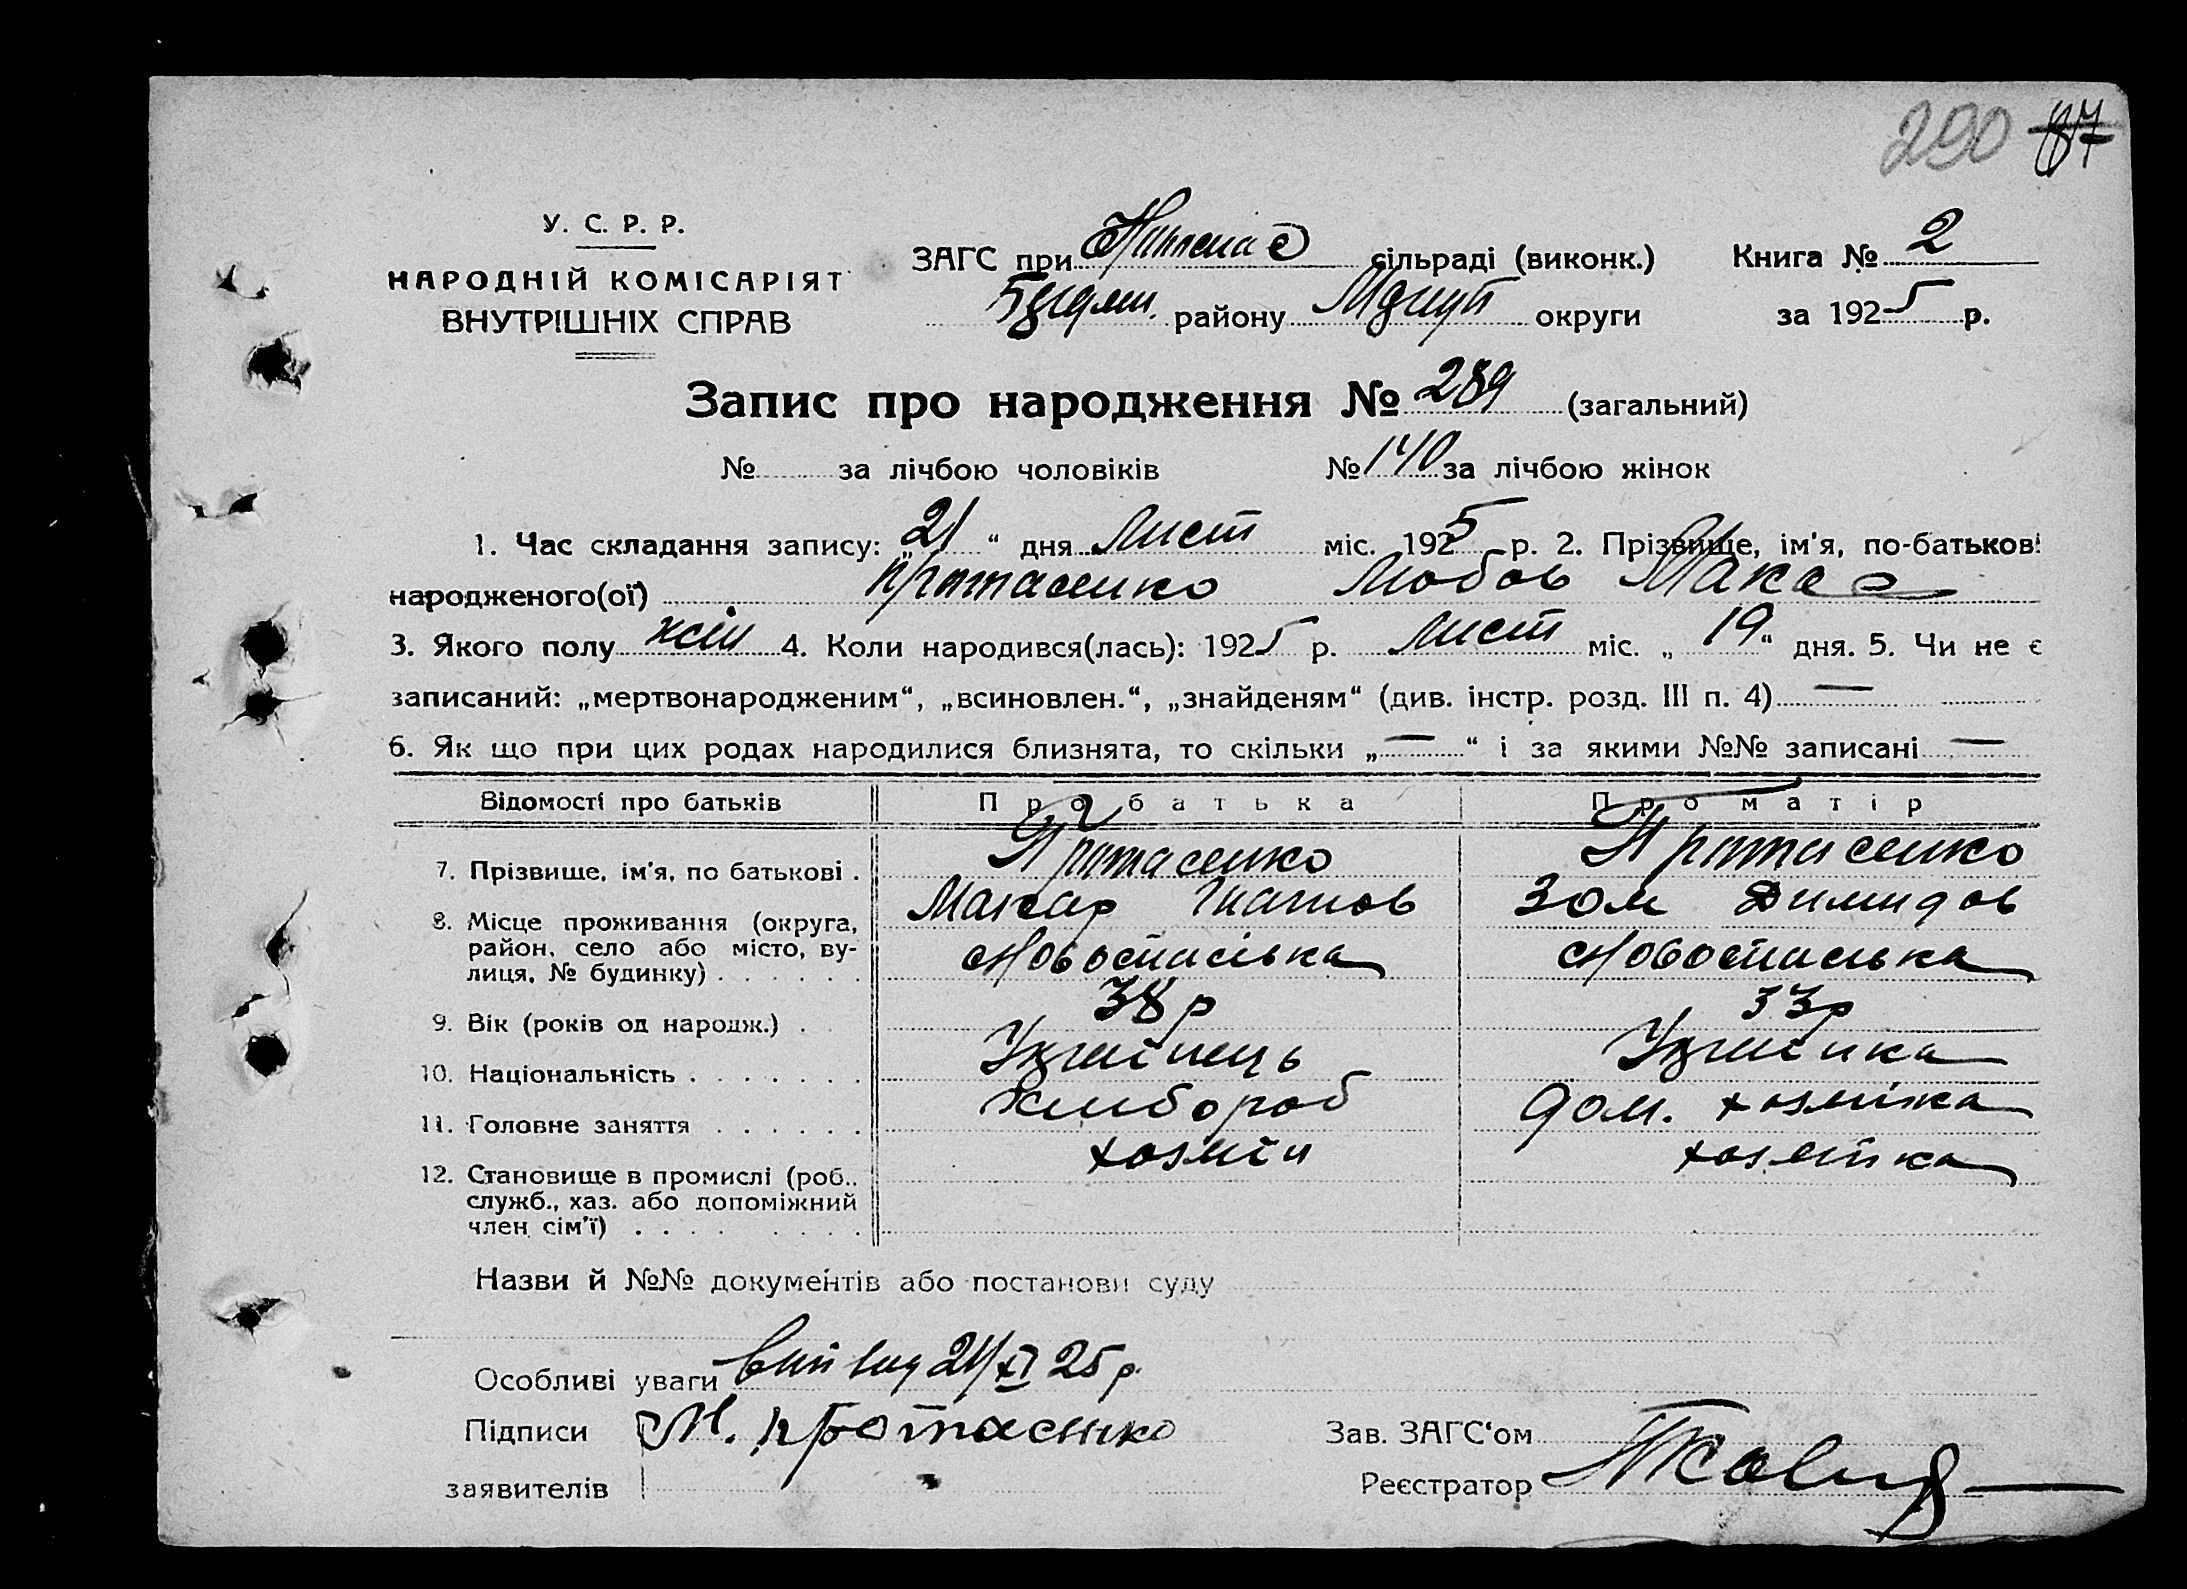 290 87
У. С. Р. Р.
НАРОДНІЙ КОМІСАРІЯТ
ВНУТРІШНІХ СПРАВ
ЗАГС при сільраді (виконк.) Книга № 2
району округи за 1925 р.
Запис про народження № 289 (загальний)
№ за лічбою чоловіків № 140 за лічбою жінок
1. Час складання запису: „21“ дня Лист міс. 1925 р. 2. Прізвище, ім'я, по-батькові
народженого(ої) Протасенко Любов Мака
3. Якого полу жін 4. Коли народився(лась): 1925 р. Лист міс. „19“ дня. 5. Чи не є
записаний: „мертвонародженим“, „всиновлен.“, „знайденям“ (див. інстр. розд. III п. 4) —
6. Як що при цих родах народилися близнята, то скільки „—“ і за якими №№ записані —
Відомості про батьків Про батька Про матір
7. Прізвище, ім'я, по батькові . Протасенко Протасенко
Макар Гнатов Зом Димидов
8. Місце проживання (округа, район, село або місто, вулиця, № будинку) . . . . . . Новоспаська Новоспаська
9. Вік (років од народж.) . . 38 р 33 р
10. Національність . . . . . . . Українець Українка
11. Головне заняття . . . . . . Хлібороб дом. хозяйка
12. Становище в промислі (роб., служб., хаз. або допоміжний член сім'ї) . . . . . . . . хозяїн хозяйка
Назви й №№ документів або постанови суду
Особливі уваги 21/XI 25 р.
Підписи М. Протасенко Зав. ЗАГС'ом
заявителів Реєстратор